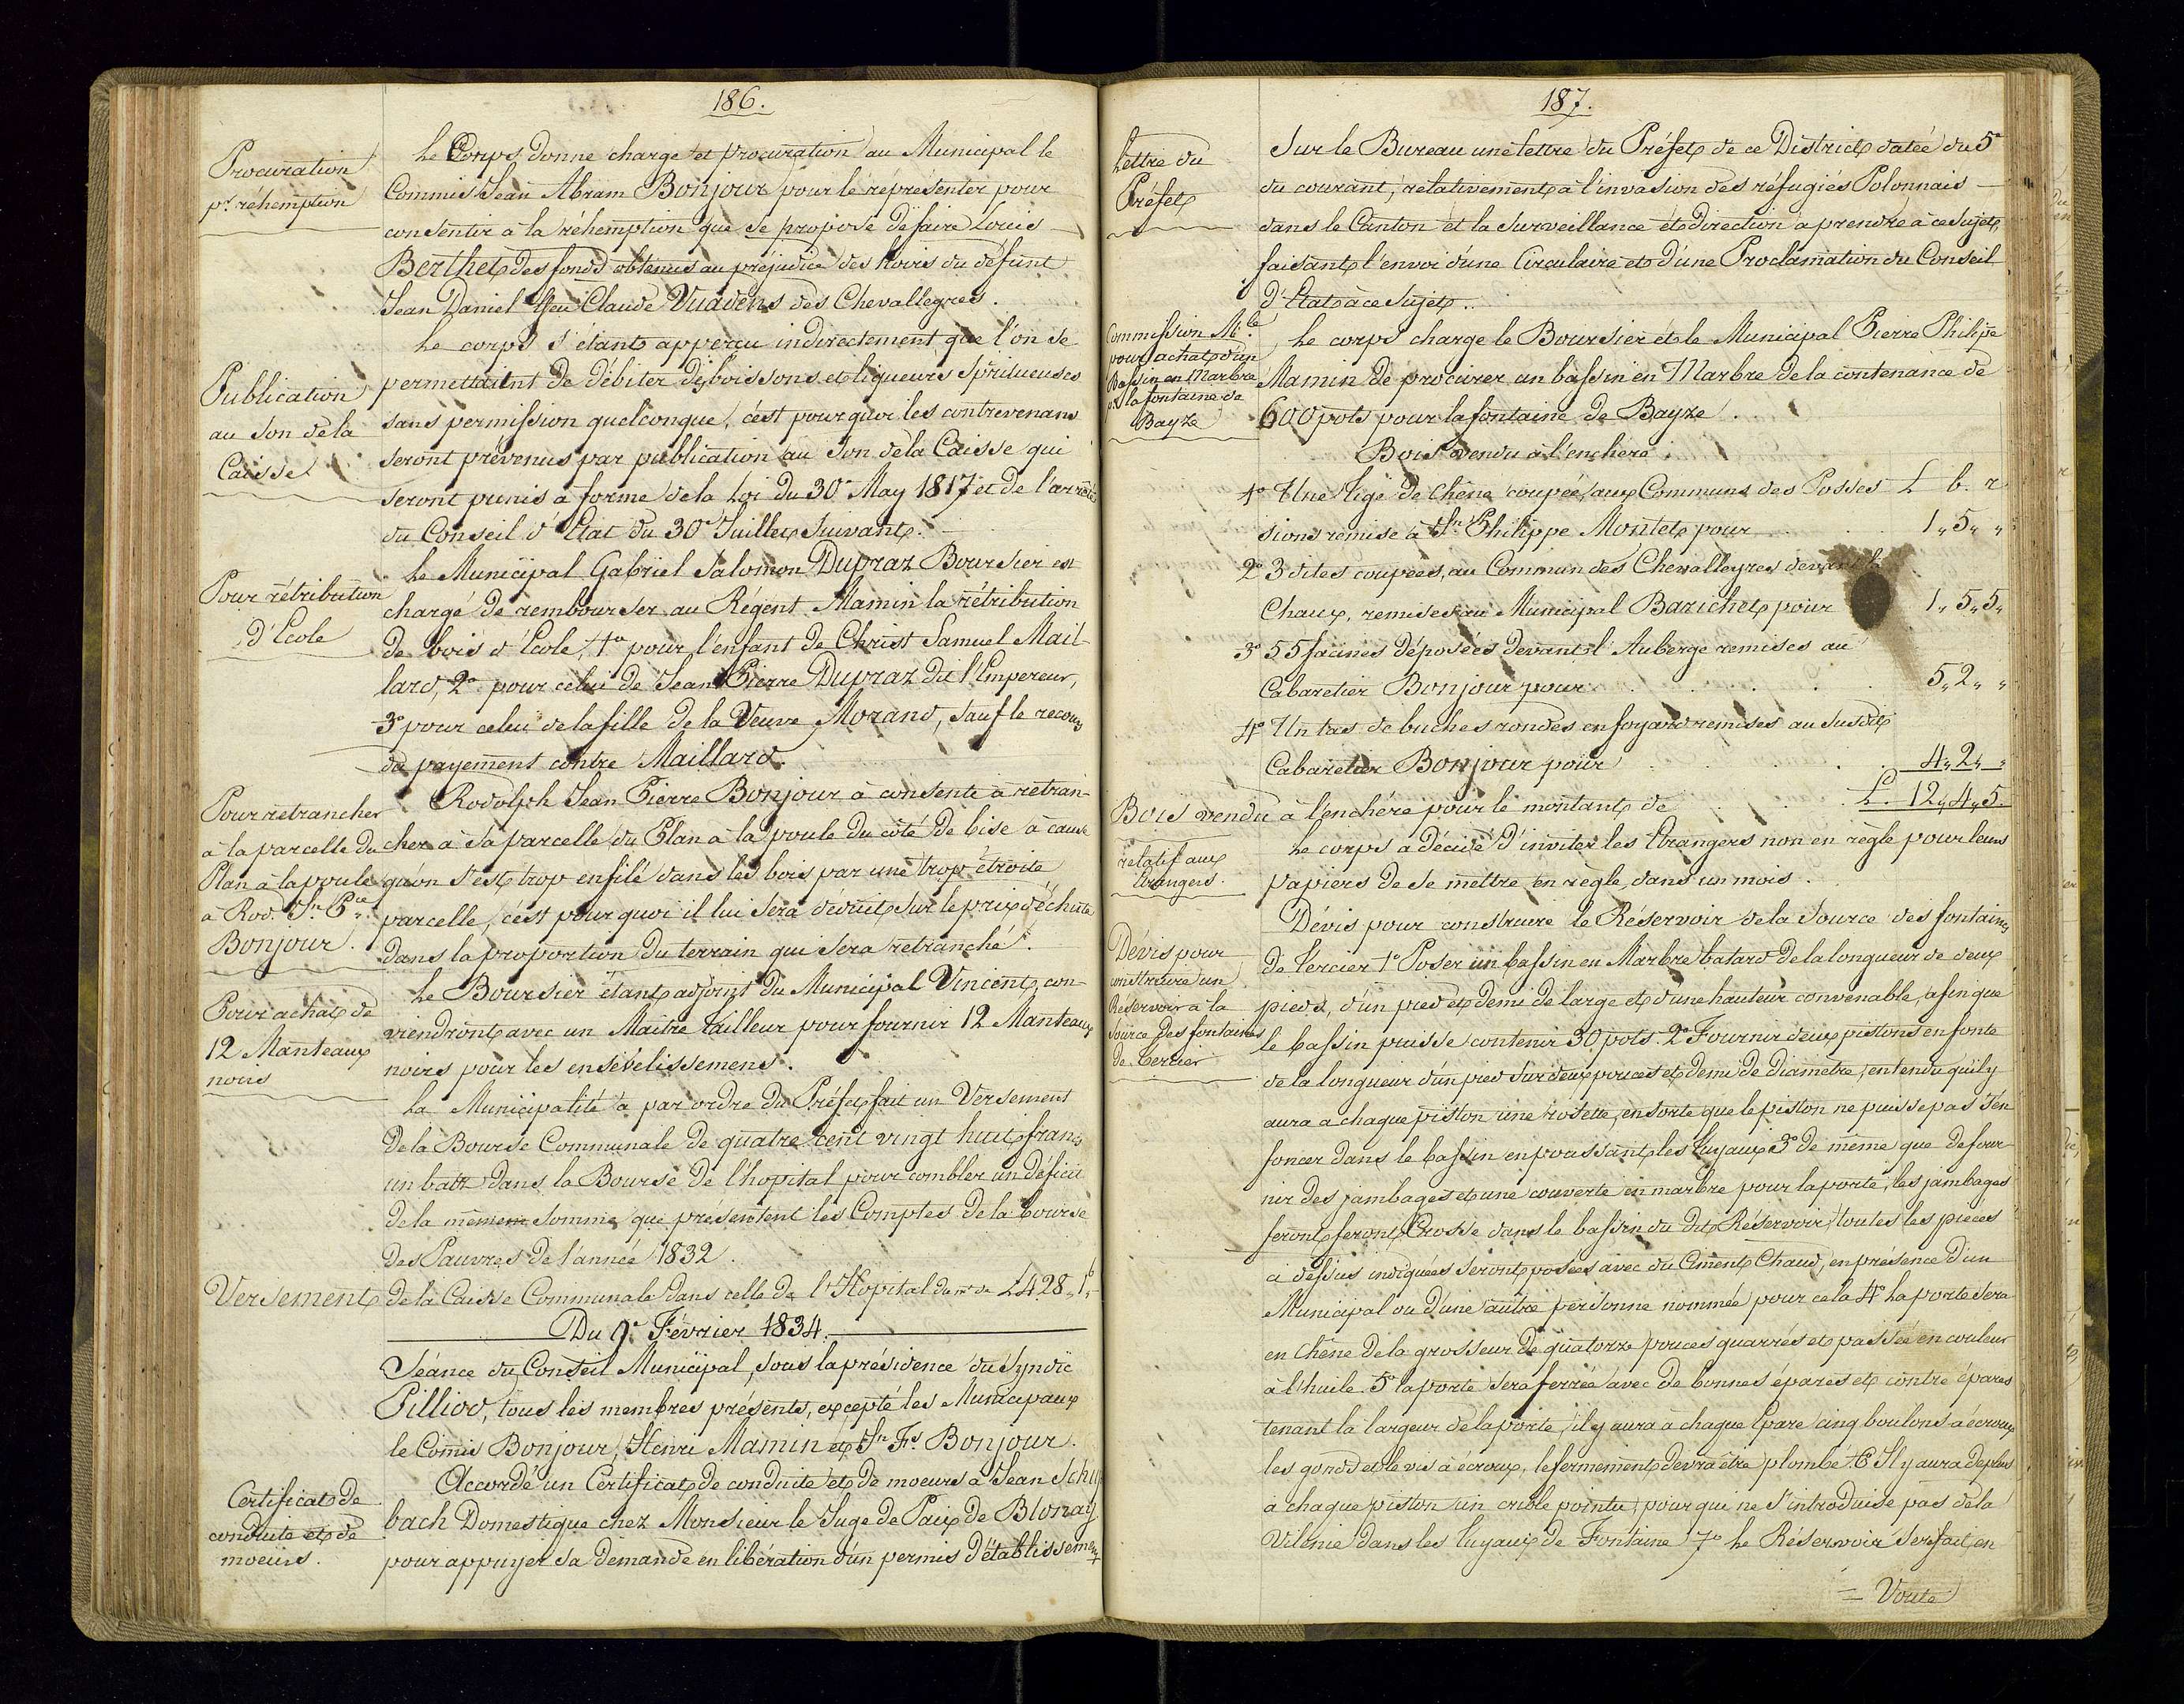 186.
Procuration
pr. réhemption
Le Corps donne charge et procuration au Municipal le
Commis Jean Abram Bonjour pour le représenter pour
consentir à la réhemption que se propose de faire Louis
Berthet des fonds obtenus au préjudice des hoirs du défunt
Jean Daniel ffeu Claude Vuadens des Chevallegres.
Publication
au Son de la
Caisse
Le corps s'étant apperçu indirectement que l'on se
permettaient de débiter des boissons et liqueurs spiritueuses
sans permission quelconque, c'est pourquoi les contrevenans
seront prévenus par publication au Son de la Caisse qui
seront punis à forme de la Loi du 30e May 1817 et de l'arrêté
du Conseil d'Etat du 30e Juillet Suivant.
Pour rétribution
d'Ecole
Le Municipal Gabriel Salomon Dupraz Boursier est
chargé de rembourser au Régent Mamin la rétribution
de bois d'Ecole, 1o pour l'enfant de Christ Samuel Mail-
lard, 2o pour celui de Jean Pierre Dupraz dit l'Empereur,
3o pour celui de la fille de la Veuve Morand, Sauf le recours
du payement contre Maillard.
Pour retrancher
à la parcelle du
Plan à la poule
à Rod. Jn. Pre
Bonjour.
Rodolph Jean Pierre Bonjour à consenti à retran-
cher à Sa parcelle du Plan à la poule du côté de bise à cause
qu'on s'est trop enfilé dans les bois par une trop étroite
parcelle, c'est pour quoi il lui sera déduit sur le prix d'échute
dans la proportion du terrain qui sera retranché.
Pour achat de
12 Manteaux
noirs
Le Boursier étant adjoint du Municipal Vincent con-
viendront avec un Maître tailleur pour fournir 12 Manteaux
noirs pour les ensévélissemens.
La Municipalité a par ordre du Préfet fait un Versement
de la Bourse Communale de quatre cent vingt huit francs
un batz dans la Bourse de l'hopital pour combler un déficit
de la même somme que présentent les Comptes de la bourse
des Pauvres de l'année 1832.
Versement de la Caisse Communale dans celle de l'Hopital de L 428,, 1b
Du 9e Février 1834.
Séance du Conseil Municipal, sous la présidence du Syndic
Pilliod, tous les membres présents, excepté les Municipaux
le Comis Bonjour, Henri Mamin et Jn Fs Bonjour.
Certificat de
conduite et de
moeurs.
Accordé un Certificat de conduite et de moeurs à Jean Schu
bach Domestique chez Monsieur le Juge de Paix de Blonay
pour appuyer sa demande en libération d'un permis d'établissement
187.
Lettre du
Préfet
Sur le Bureau une lettre du Préfet de ce District datée du 5e
du courant, relativement à l'invasion des réfugiés Polonnais
dans le Canton et la surveillance et direction à prendre à ce Sujet,
faisant l'envoi d'une Circulaire et d'une Proclamation du Conseil
d'Etat à ce Sujet.
Commission Mle
pour achat d'un
Bassin en Marbre
pr la fontaine de
Bayze
Le corps charge le Boursier et le Municipal Pierre Philipe
Mamin de procurer un bassin en Marbre de la contenance de
600 pots pour la fontaine de Bayze.
Bois vendu à l'enchère.
1o Une tige de Chêne coupée aux Communs des Posses L b. r
sions remise à Jn Philippe Montet pour 1,, 5,, ,,
2o 3 dites coupées, au Commun des Chevalleyres devant la
Chaux, remises au Municipal Barichet pour 1,, 5,, 5,,
3o 55 facines déposées devant l'Auberge remises au
Cabaretier Bonjour pour 5,, 2,, ,,
4o Un tas de buches rondes en foyard remises au susdit
Cabaretier Bonjour pour 4,, 2,, ,,
Bois vendu à l'enchère pour le montant de L. 12,, 4,, 5.
relatif aux
étrangers.
Le corps a décidé d'inviter les étrangers non en règle pour leurs
papiers de se mettre en règle, dans un mois.
Dévis pour
construire un
Réservoir à la
source des fontaines
de Tercier
Dévis pour construire le Réservoir de la Source des fontaines
de Tercier 1o Poser un bassin en Marbre batard de la longueur de deux
pieds, d'un pied et demi de large et d'une hauteur convenable, afin que
le bassin puisse contenir 30 pots. 2o Fournir deux pistons en fonte
de la longueur d'un pied sur deux pouces et demi de diamètre, entendu qu'il y
aura a chaque piston une rosette, en sorte que le piston ne puisse pas s'en-
foncer dans le bassin en poussant les tuyaux 3o de même que de four-
nir des jambages et une couverte en marbre pour la porte, les jambages
feront feront Crosse dans le bassin du dit Réservoir, toutes les pièces
ci dessus indiquées seront posées avec du Ciment Chaud, en présence d'un
Municipal ou d'une autre personne nommée pour cela 4o La porte sera
en Chêne de la grosseur de quatorze pouces quarrés et passée en couleur
à l'huile. 5o la porte sera ferrée avec de bonnes épares et contre épares
tenant la largeur de la porte, il y aura à chaque Epare cinq boulons à écroux
les gonds et le vis à écroux, le fermement devra être plombé 6o Il y aura de plus
à chaque piston un crible pointu, pour qui ne s'introduise pas de la
Vilenie dans les tuyaux de Fontaine 7o Le Réservoir sera fait, en
= Voute